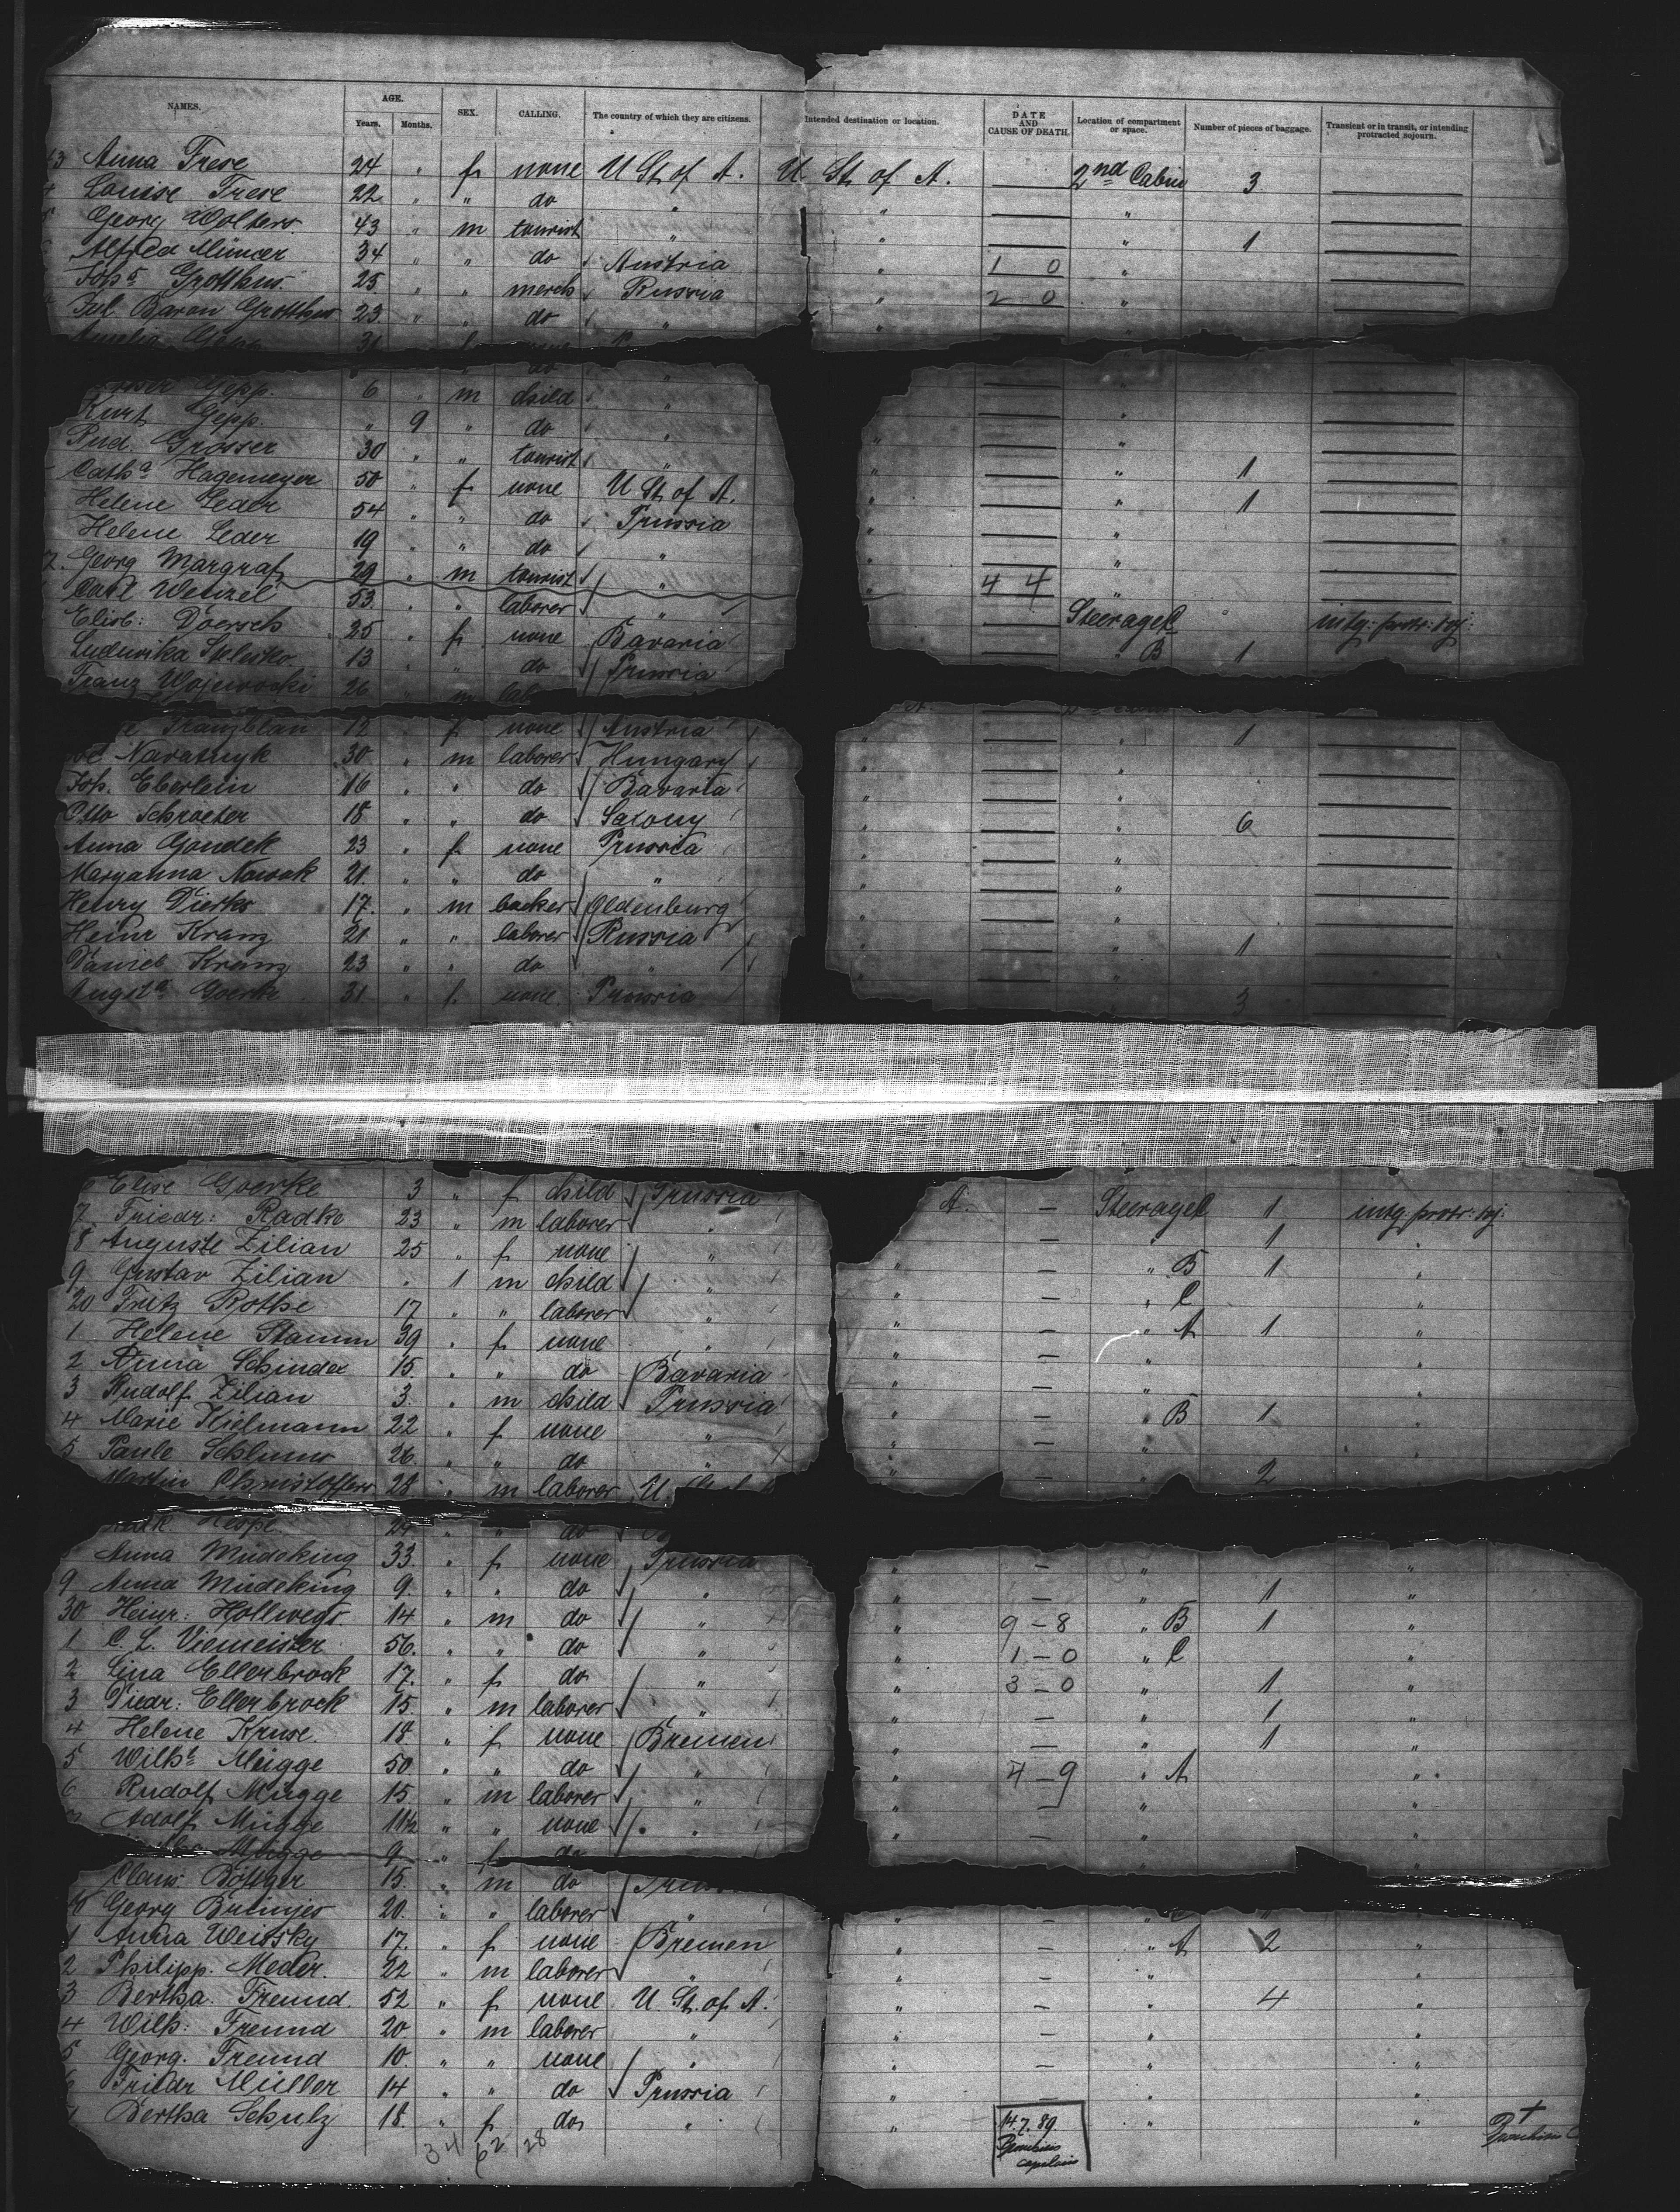 NAMES. AGE. Years. Months. SEX. CALLING. The country of which they are citizens. Intended destination or location. DATE AND CAUSE OF DEATH. Location of compartment or space. Number of pieces of baggage. Transient or in transit, or intending protracted sojourn.
3 Anna Frese 24 " f none U St of A. U. St. of A. — 2nd Cabin 3 —
Louise Frese 22 " " do " " — " —
Georg Wolters 43 " m tourist " " — " 1 —
Alfred Münzer 34 " " do Austria " 1 0 " —
Joh.s Grotthus 25 " " merch Russia " 2 0 " —
Jul. Baron Grotthus 23 " " do " " " —
Amelia 31 f none
do
Gepp. 6 " m child " — " —
Kurt Gepp. " 9 " do " — " —
Rud. Grosser 30 " " tourist " " — " 1 —
Cath.a Hagemeyer 50 " f none U St. of A. " — " 1 —
Helene Leder 54 " " do Prussia " — —
Helene Leder 19 " " do " " — " —
7. Georg Margraf 29 " m tourist " " 4 4 " —
Carl Wenzel 53 " " laborer " — Steerage C intg: protr: soj:
Elisb: Doersch 25 " f none Bavaria — " B 1
Ludwika 13 " " do Prussia
Franz Wojewocki 26 m
12 f none Austria " — " 1 —
30 " m laborer Hungary " — " —
Joh. Eberlein 16 " " do Bavaria " — " —
Otto Schroeter 18 " " do Saxony " — " 6 —
Anna Gondek 23 " f none Prussia " — " —
Maryanna Nowak 21. " " do " — " —
Henry Dierks 17. " m backer Oldenburg " — —
Heinr Kranz 21 " " laborer Russia " — " 1 —
Daniel Kranz 23 " " do " — " —
Augst.a Goerke 31 " f. none. Prussia — 3 —
Elise Goerke 3 " f child Prussia A. — Steerage C 1 intg: protr: soj:
7 Friedr: Radke 23 " m laborer " — " 1 "
8 Auguste Zilian 25 " f none " " — " B 1 "
9 Gustav Zilian " 1 m child " " — " C "
20 Fritz Rothe 17 " " laborer " " — " A 1 "
1 Helene Stamm 39 " f none " " — " "
2 Anna Schinder 15. " " do Bavaria " — " "
3 Rudolf Zilian 3. " m child Prussia " — " B 1 "
4 Marie Kielmann 22 " f none " " — " "
5 Paule 26. " " do " " — " 2 "
Martin Christoffers 28 " m laborer U.
Hespe 24 " " do
Anna Müdeking 33 " f none Prussia " — " "
9 Anna Müdeking 9. " " do " " — " 1 "
30 Heinr: Hollwegs 14 " m do " " 9 – 8 " B 1 "
1 C. L. Viemeister 56. " " do " " 1 – 0 " C
2 Lina Ellerbrock 17. " f do " " 3 – 0 " 1 "
3 Diedr: Ellerbrock 15. " m laborer " " — " 1 "
4 Helene Kruse. 18. " f none Bremen " — " 1 "
5 Wilh.e Mügge 50. " " do " " 4 – 9 " A "
6 Rudolf Mügge 15. " m laborer " " — " "
Adolf Mügge 11½ " " none " " — " "
Mügge 9 " f do
Claus Böttger 15. " m do
40 Georg Brünjes 20. " " laborer "
1 Anna Weissky 17. " f none Bremen " — " A 2 "
2 Philipp. Meder. 22 " m laborer " " — " "
3 Bertha. Freund. 52 " f none U. St. of A. " — " 4 "
4 Wilh: Freund 20 " m laborer " " — " "
5 Georg. Freund 10. " " none " " — " "
6 Friedr Müller 14 " " do Prussia " — " "
Bertha Schulz 18. " f do " " " "
34 62 28
14.7.89.